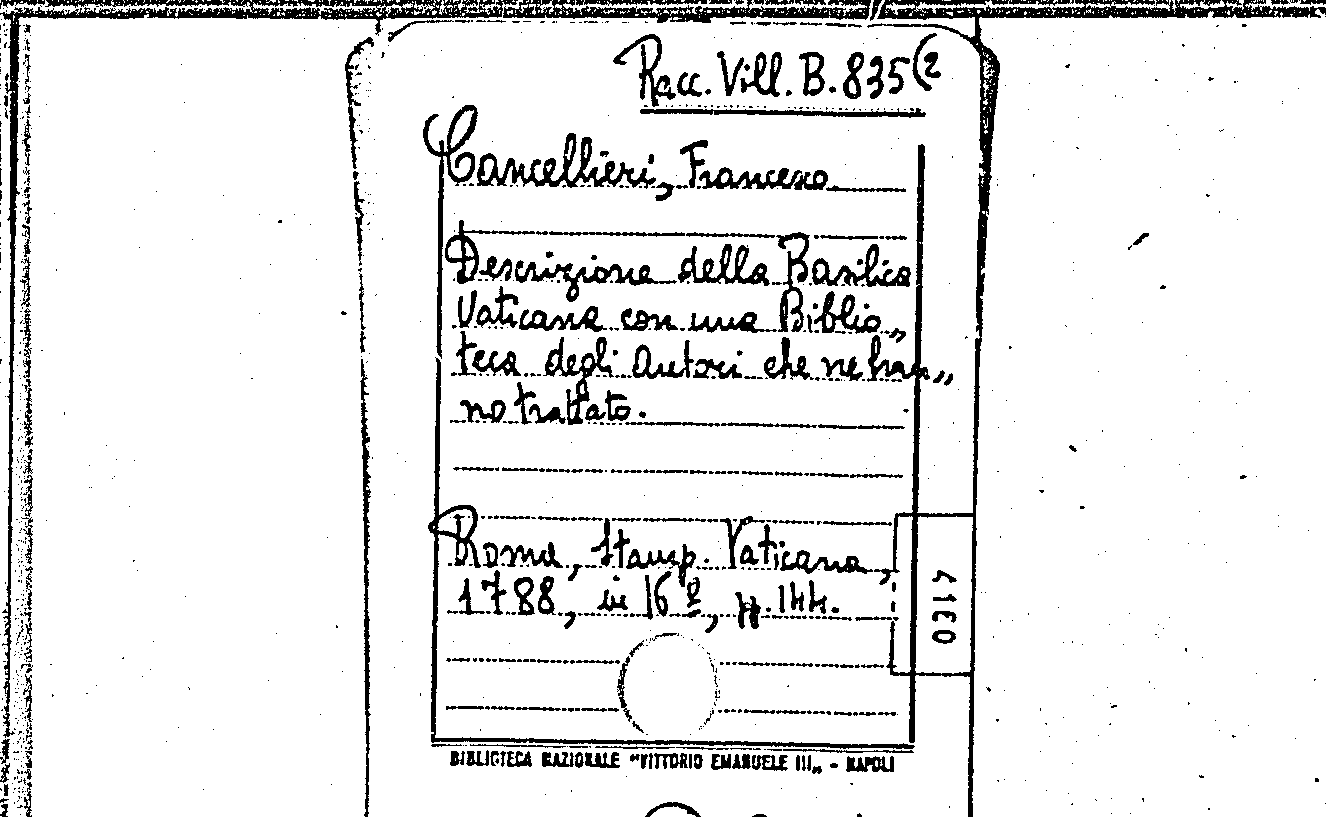 Racc. Vill. B. 835(2
Cancellieri, Francesco.
Descrizione della Basilica
Vaticana con una Biblio„
teca degli Autori che ne han„
no trattato.
Roma, Stamp. Vaticana,
1788, in 16º, pp. 144.
BIBLIOTECA NAZIONALE "VITTORIO EMANUELE III„ - NAPOLI